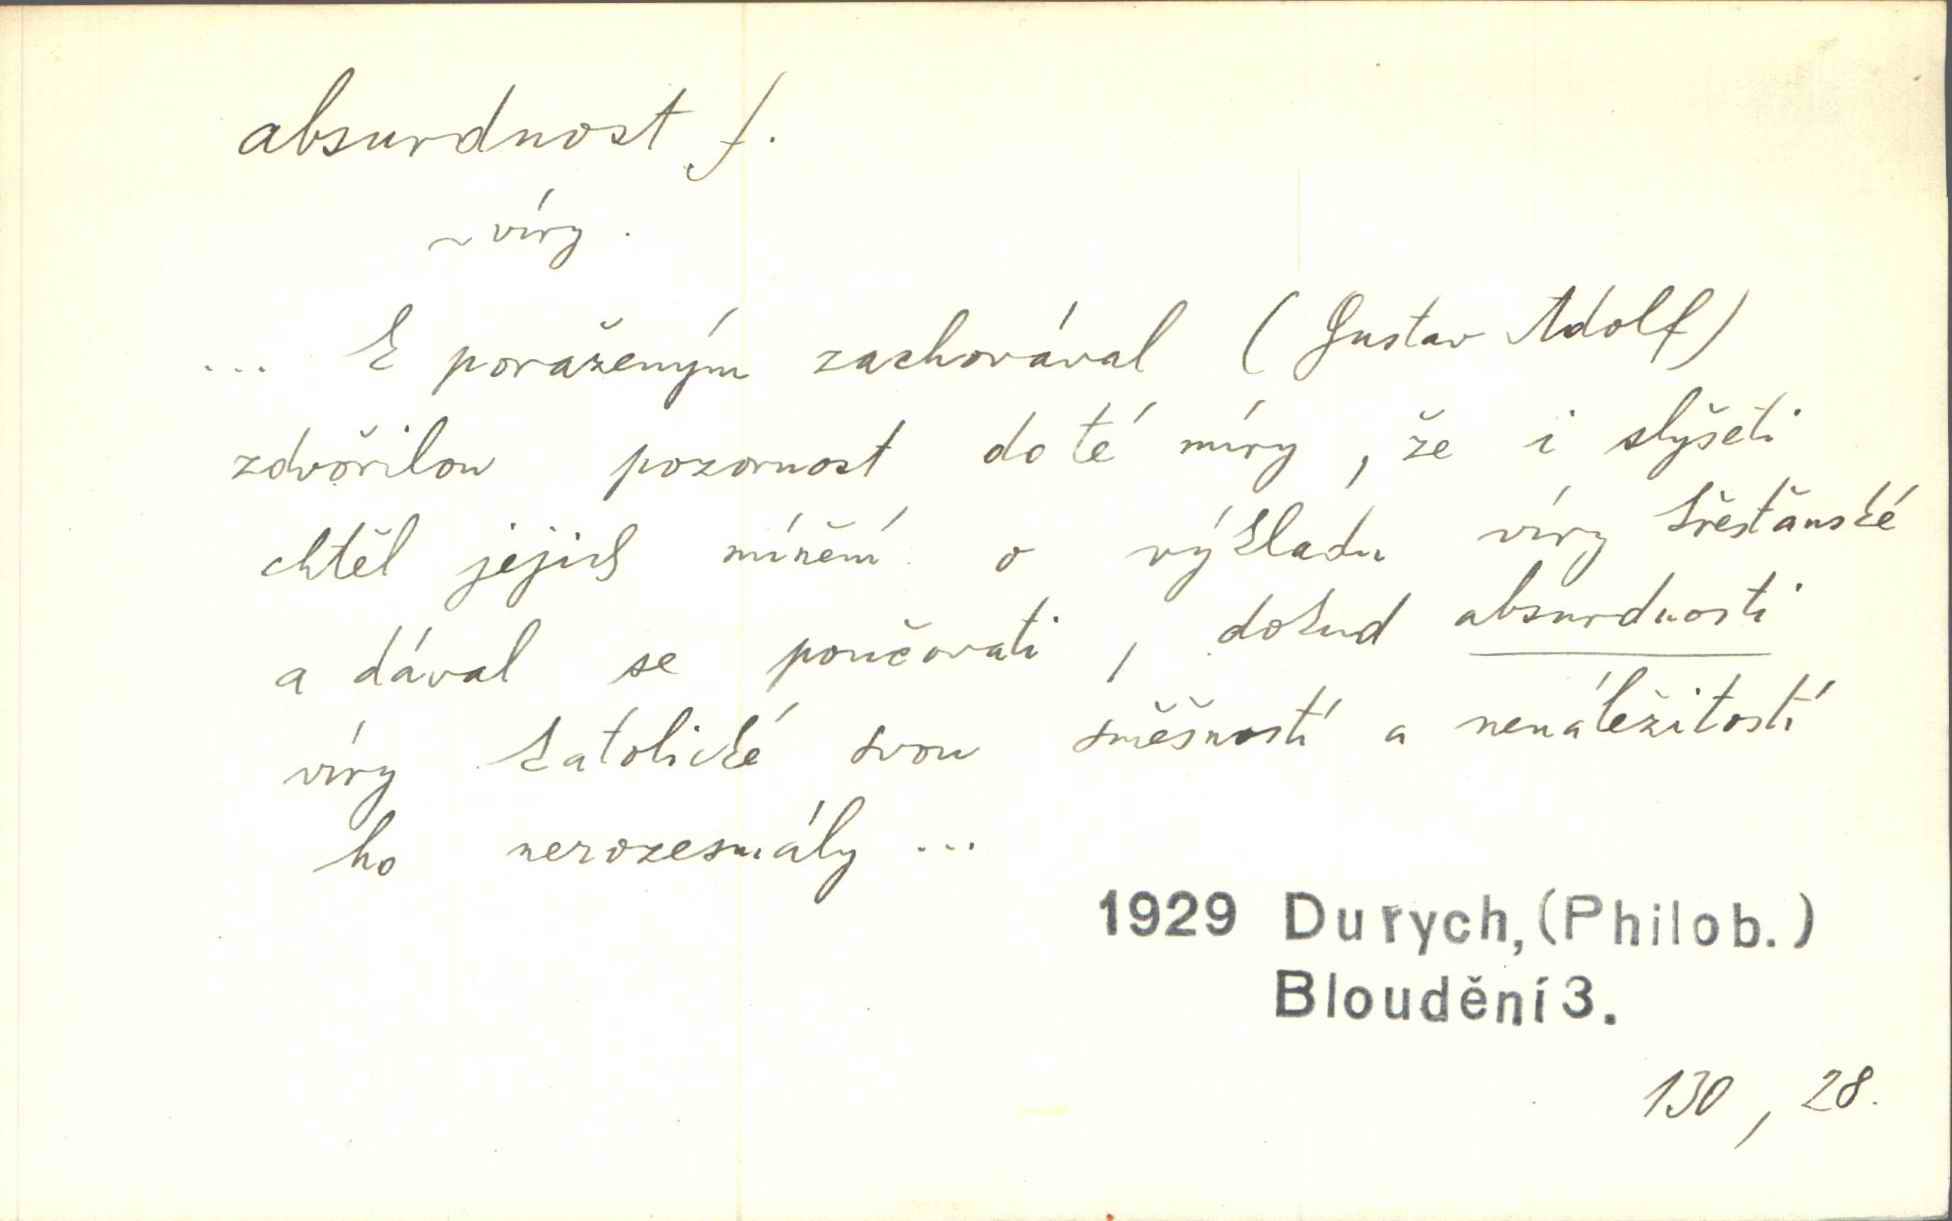 absurdnost f.
~ víry.
... k poraženým zachovával (Gustav Adolf)
zdvořilou pozornost do té míry, že i slyšeti
chtěl jejich mínění o výkladu víry křesťanské
a dával se poučovati, dokud absurdnosti
víry katolické svou směšností a nenáležitostí
ho nerozesmály ...
1929 Durych, (Philob.)
Bloudění 3.
130, 28.